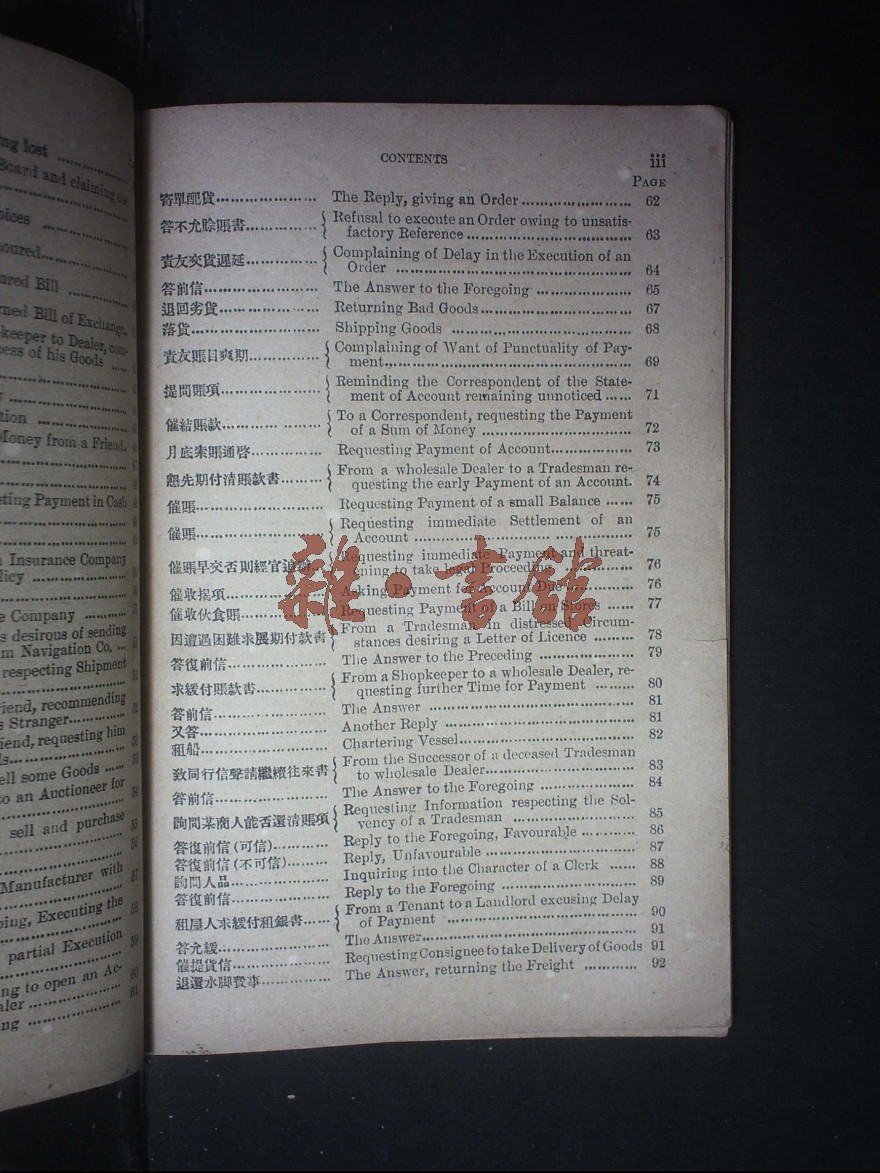 ing lost
Board and claiming the
oices
noured
ured Bill
rned Bill of Exchange,
keeper to Dealer, com-
ess of his Goods
tion
Money from a Friend.
sting Payment in Cash
n Insurance Company
licy
e Company
s desirous of sending
m Navigation Co. ...
respecting Shipment
riend, recommending
s Stranger
iend, requesting him
ds
ell some Goods
to an Auctioneer for
sell and purchase
Manufacturer with
ping, Executing the
partial Execution
ng to open an Ac-
aler
ng
CONTENTS iii
PAGE
寄單配貨 The Reply, giving an Order 62
答不允賒賬書 { Refusal to execute an Order owing to unsatis-
factory Reference 63
責友交貨遲延 { Complaining of Delay in the Execution of an
Order 64
答前信 The Answer to the Foregoing 65
退回劣貨 Returning Bad Goods 67
落貨 Shipping Goods 68
責友賬目爽期 { Complaining of Want of Punctuality of Pay-
ment 69
提問賬項 { Reminding the Correspondent of the State-
ment of Account remaining unnoticed 71
催結賬款 { To a Correspondent, requesting the Payment
of a Sum of Money 72
月底索賬通啓 Requesting Payment of Account 73
懇先期付清賬款書 { From a wholesale Dealer to a Tradesman re-
questing the early Payment of an Account. 74
催賬 Requesting Payment of a small Balance 75
催賬 { Requesting immediate Settlement of an
Account 75
催賬早交否則經官追 { Requesting immediate Payment and threat-
ening to take legal Proceeding 76
催收揭項 Asking Payment for Account Due 76
催收伙食賬 Requesting Payment of a Bill on Stores 77
因遭遇困難求展期付款書 { From a Tradesman in distressed Circum-
stances desiring a Letter of Licence 78
答復前信 The Answer to the Preceding 79
求緩付賬款書 { From a Shopkeeper to a wholesale Dealer, re-
questing further Time for Payment 80
答前信 The Answer 81
又答 Another Reply 81
租船 Chartering Vessel 82
致同行信聲請繼續往來書 { From the Successor of a deceased Tradesman
to wholesale Dealer 83
答前信 The Answer to the Foregoing 84
詢問某商人能否還清賬項 { Requesting Information respecting the Sol-
vency of a Tradesman 85
答復前信(可信) Reply to the Foregoing, Favourable 86
答復前信(不可信) Reply, Unfavourable 87
詢問人品 Inquiring into the Character of a Clerk 88
答復前信 Reply to the Foregoing 89
租屋人求緩付租銀書 { From a Tenant to a Landlord excusing Delay
of Payment 90
答允緩 The Answer 91
催提貨信 Requesting Consignee to take Delivery of Goods 91
退還水脚費事 The Answer, returning the Freight 92
雜·書館